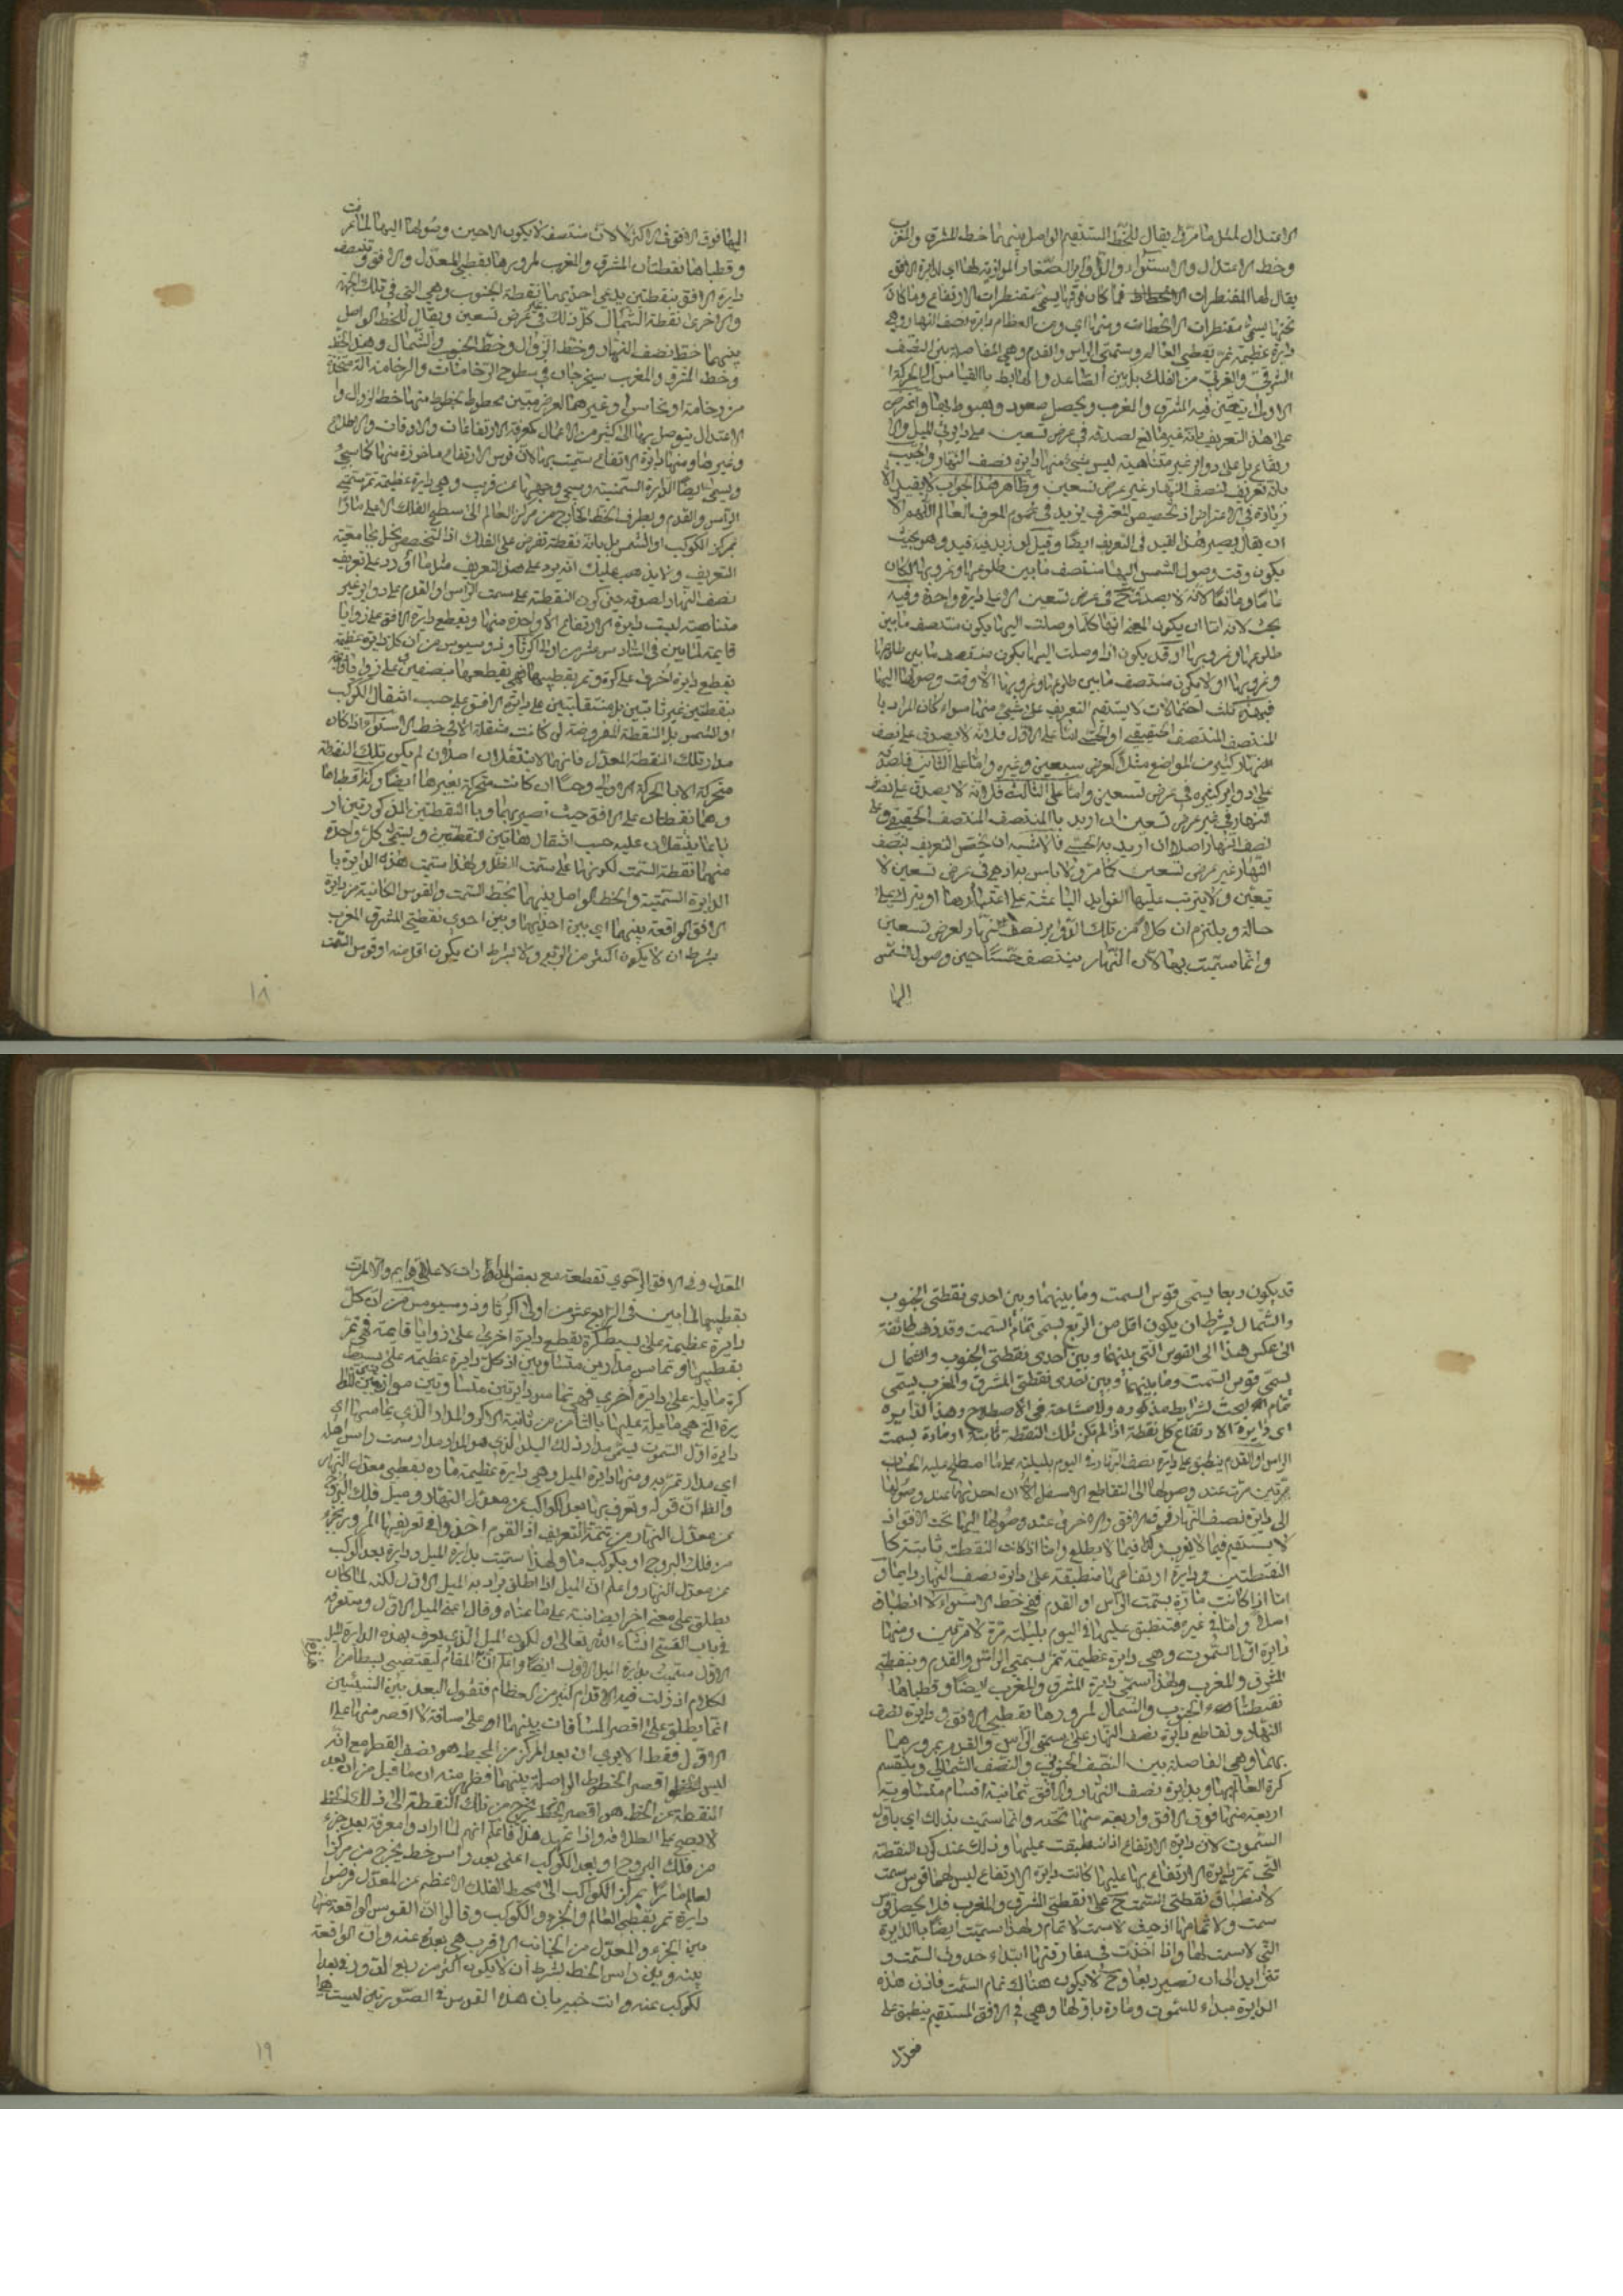 الاعتدال لمثل ما مر وقد يقال للخط المستقيم الواصل بينهما خط المشرق والمغرب
وخط الاعتدال والاستواء والدواير الصغار الموازية لها اي لدايرة الافق
يقال لها المقنطرات فما كان فوقها يسمى مقنطرات الارتفاع وما كان
تحتها يسمى مقنطرات الانحطاط ومنها اي ومن العظام دايرة نصف النهار وهي
دايرة عظيمة تمر بقطبي العالم وسمتي الراس والقدم وهي الفاصلة بين النصف
الشرقي والغربي من الفلك بل بين الصاعد والهابط بالقياس الى الحركة
الاولى يتعين فيه المشرق والمغرب ويحصل صعود وهبوط بها واعترض
على هذا التعريف بانه غير مانع لصدقه في عرض تسعين على دوايري الميل والا
رتفاع بل على دواير غير متناهية ليس شيء منها دايرة نصف النهار واجيب
بانه تعريف لنصف النهار غير عرض تسعين وظاهر هذا الجواب لا يفيد الا
زيادة في الاعتراض اذ تخصيص المعرف يزيد في عموم المعرف العالم اللهم الا
ان يقال يصير هذا القيد في التعريف ايضا وقيل لو زيد فيه قيد وهو بحيث
يكون وقت وصول الشمس اليها منتصف ما بين طلوعها وغروبها لكان
جامعا ومانعا لانه لا يصدق ح في عرض تسعين الا على دايرة واحدة وفيه
بحث لانه اما ان يكون المعنى انها كلما وصلت اليها يكون منتصف ما بين
طلوعها وغروبها او قد يكون اذا وصلت اليها يكون منتصف ما بين طلوعها
وغروبها او لا يكون منتصف ما بين طلوعها وغروبها الا وقت وصولها اليها
فهذه ثلث احتمالات لا يستقيم التعريف على شيء منها سواء كان المراد با
لمنتصف المنتصف الحقيقي او الحسي اما على الاول فلانه لا يصدق على نصف
النهار كثير من المواضع مثل عرض سبعين وغيره واما على الثاني فلصدقه
على دواير كثيرة في عرض تسعين واما على الثالث فلانه لا يصدق على نصف
النهار في غير عرض تسعين ان اريد بالمنتصف المنتصف الحقيقي وعلى
نصف النهار اصلا ان اريد به الحسي فالاشبه ان يختص التعريف بنصف
النهار غير عرض تسعين كما مر ولا باس بذلك اذ هي في عرض تسعين لا
تتعين ولا يترتب عليها الفوايد الباعثة على اعتبارها او يترك على
حاله ويلتزم ان كلا من تلك الدواير نصف نهار لعرض تسعين
وانما سميت بها لان النهار ينتصف حسا حين وصول الشمس
اليها
اليها فوق الافق في الاكثر لا لان منتصفه لا يكون الا حين وصولها اليها لما عرفت
وقطباها نقطتا المشرق والمغرب لمرورها بقطبي المعدل والافق وتنصف
دايرة الافق بنقطتين يدعى احديهما نقطة الجنوب وهي التي في تلك الجهة
والاخرى نقطة الشمال كل ذلك في غير عرض تسعين ويقال للخط الواصل
بينهما خط نصف النهار وخط الزوال وخط الجنوب والشمال وهذا الخط
وخط المشرق والمغرب يستخرجان في سطوح الرخامات والرخامة آلة متخذة
من رخامة او نحاس او غيرهما لغرض مبين مخطوط بخطوط منها خط الزوال وا
لاعتدال يتوصل بها الى كثير من الاعمال كمعرفة الارتفاعات والاوقات والاظلال
وغيرها ومنها دايرة الارتفاع سميت بها لان قوس الارتفاع ماخوذة منها كما سيجيء
ويسمى ايضا الدايرة السمتية وسيجيء وجهها عن قريب وهي دايرة عظيمة تمر بسمتي
الراس والقدم وبطرف الخط الخارج من مركز العالم الى سطح الفلك الاعلى مارا
بمركز الكوكب او الشمس بل باية نقطة تفرض على الفلك اذ التخصيص يخل بجامعية
التعريف ولا يذهب عليك انه يرد على هذا التعريف مثل ما اورد على تعريف
نصف النهار لصدقه حين كون النقطة على سمت الراس او القدم على دواير غير
متناهية ليست دايرة الارتفاع الا واحدة منها وتقطع دايرة الافق على زوايا
قايمة لما بين في السادس عشر من اولى اكر ثاوذوسيوس من ان كل دايرة عظيمة
تقطع دايرة اخرى على كرة وتمر بقطبيها فهي تقطعها بنصفين وعلى زوايا قايمة
بنقطتين غير ثابتتين بل منتقلتين على دايرة الافق على حسب انتقال الكوكب
او الشمس بل النقطة المفروضة لو كانت منتقلة الا في خط الاستواء اذا كان
مدار تلك النقطة المعدل فانهما لا تنتقلان اصلا وان لم يكن تلك النقطة
متحركة الا بالحركة الاولى وحدها ان كانت متحركة بغيرها ايضا وكذا قطباها
وهما نقطتان على الافق حيث تصير بهما وبالنقطتين المذكورتين ار
باعا ينتقلان عليه حسب انتقال هاتين النقطتين ويسمى كل واحدة
منهما نقطة السمت لكونها على سمت الظل ولهذا سميت هذه الدايرة با
لدايرة السمتية والخط الواصل بينهما بخط السمت والقوس الكائنة من دايرة
الافق الواقعة بينهما اي بين احديهما وبين احدى نقطتي المشرق المغرب
بشرط ان لا يكون اكثر من الربع ولا بشرط ان يكون اقل منه او قوس السمت
١٨
قد يكون ربعا يسمى قوس السمت وما بينهما وبين احدى نقطتي الجنوب
والشمال بشرط ان يكون اقل من الربع يسمى تمام السمت وقد ذهب طائفة
الى عكس هذا الى القوس التي بينهما وبين احدى نقطتي الجنوب والشمال
يسمى قوس السمت وما بينهما وبين احدى نقطتي المشرق والمغرب يسمى
تمام السمت بشرايط مذكورة ولا مشاحة في الاصطلاح وهذا الدايرة
اي دايرة الارتفاع كل نقطة اذا لم تكن تلك النقطة ثابتة او مارة بسمت
الراس او القدم ينطبق على دايرة نصف النهار في اليوم بليلته على ما اصطلح عليه الحساب
مرتين مرة عند وصولها الى التقاطع الاسفل الا ان احديهما عند وصولها
الى دايرة نصف النهار فوق الافق والاخرى عند وصولها اليها تحت الافق اذ
لا يستقيم فيما لا يغرب ولا فيما لا يطلع واما اذا كانت النقطة ثابتة كا
لنقطتين ودايرة ارتفاعها منطبقة على دايرة نصف النهار دايما و
اما اذا كانت مارة بسمت الراس او القدم ففي خط الاستواء لا انطباق
اصلا واما في غيره فتنطبق عليها في اليوم بليلته مرة لا مرتين ومنها
دايرة اول السموت وهي دايرة عظيمة تمر بسمتي الراس والقدم وبنقطتي
المشرق والمغرب ولهذا تسمى دايرة المشرق والمغرب ايضا وقطباها
نقطتا الجنوب والشمال لمرورها بقطبي الافق ودايرة نصف
النهار وتقاطع دايرة نصف النهار على سمتي الراس والقدم بمرورهما
بهما وهي الفاصلة بين النصف الجنوبي والنصف الشمالي وينقسم
كرة العالم بها وبدايرة نصف النهار والافق ثمانية اقسام متساوية
اربعة منها فوق الافق واربعة منها تحته وانما سميت بذلك اي باول
السموت لان دايرة الارتفاع اذا انطبقت عليها وذلك عند كون النقطة
التي تمر دايرة الارتفاع بها عليها كانت دايرة الارتفاع ليس لها قوس سمت
لانطباق نقطتي السمت ح على نقطتي المشرق والمغرب فلا يحصل قوس
سمت ولا تمامها اذ حيث لا سمت لا تمام ولهذا سميت ايضا بالدايرة
التي لا سمت لها واذا اخذت في مفارقتها ابتداء حدوث السمت و
تتزايد الى ان تصير ربعا وح لا يكون هناك تمام السمت فاذن هذه
الدايرة مبداء للسموت ومارة باولها وهي في الافق المستقيم ينطبق على
معدل
المعدل وفي الافق الرحوي تقطعه مع بعض المدارات لا على قوايم والا لمرت
بقطبيها لما بين في الرابع عشر من اولى اكر ثاوذوسيوس من ان كل
دايرة عظيمة على بسيط كرة تقطع دايرة اخرى على زوايا قايمة فهي تمر
بقطبيها وتماس مدارين متساويين اذ كل دايرة عظيمة على بسيط
كرة مايلة على دايرة اخرى فهي تماس دايرتين متساويتين موازيتين للدا
يرة التي هي مايلة عليها بالثامن من ثانية الاكر والمدار الذي يماسها اي
دايرة اول السموت يسمى مدار ذلك البلد الذي هو المدار مدار سمت راس اهله
اي مدار تمر به ومنها دايرة الميل وهي دايرة عظيمة مارة بقطبي معدل النهار
والظ ان قوله وتعرف بها بعد الكواكب عن معدل النهار وميل فلك البروج
عن معدل النهار من تتمة التعريف اذ القوم اخذوا في تعريفها المرور بجزء
من فلك البروج او بكوكب ما ولهذا سميت بدايرة الميل ودايرة بعد الكوكب
عن معدل النهار واعلم ان الميل اذا اطلق يراد به الميل الاول لكنه لما كان
يطلق على معنى اخر ايضا نبه على ما عناه وقال اعني الميل الاول وستعرفه
في باب القسي ان شاء الله تعالى او لكون الميل الذي يعرف بهذه الدايرة الميل
الاول سميت بدايرة الميل الاول ايضا واعلم ان المقام ليقتضي بسطا من ا
لكلام اذ زلت فيه الاقدام كثير من العظام فنقول البعد بين الشيئين
انما يطلق على اقصر المسافات بينهما او على مسافة لا اقصر منها على ا
لاول فقط الا يرى ان بعد المركز من المحيط هو نصف القطر مع انه
ليس اقصر الخطوط الواصلة بينهما فظهر منه ان ما قيل من ان بعد
النقطة عن الخط هو اقصر الخط يخرج من تلك النقطة الى ذلك الخط
لا يصح على اطلاقه واذا تمهل هذا فاعلم انهم لما ارادوا معرفة بعد جزء
من فلك البروج او بعد الكوكب اعني بعد راس خط يخرج من مركز ا
لعالم مارا بمركز الكواكب الى محيط الفلك الاعظم عن المعدل فرضوا
دايرة تمر بقطبي العالم والجزء والكوكب وقالوا ان القوس الواقعة منها
بين الجزء والمعدل من الجانب الاقرب هي بعده عنه وان الواقعة
بينه وبين راس الخط بشرط ان لا يكون اكثر من ربع الدور هي بعد ا
لكوكب عنه وانت خبير بان هذا القوس في الصورتين ليست
١٩